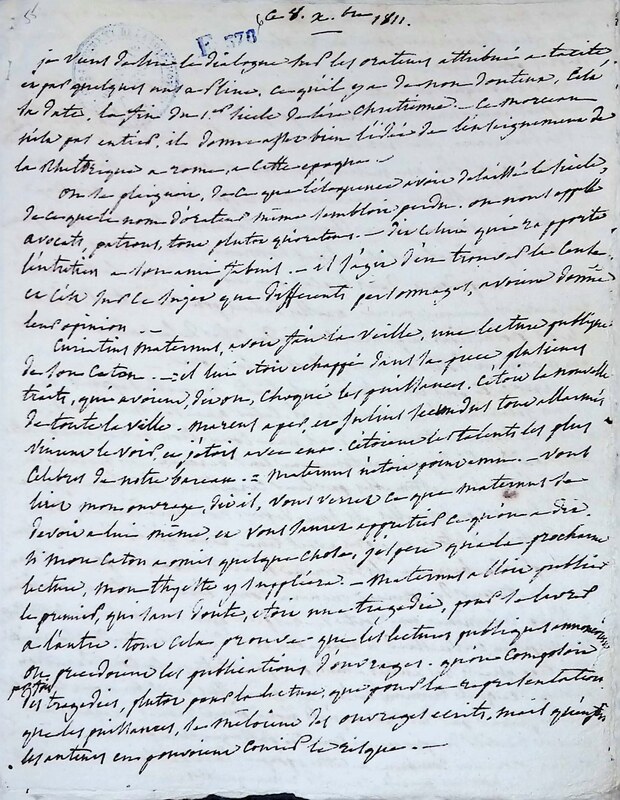 55
ce 8. x.bre 1811.
F. 578
je viens de lire le dialogue sur les orateurs attribué a tacite
et par quelques uns a pline. ce qu'il y a de non douteux, c'est
la date, la fin du 1.er siecle de l'ère chretienne. — ce morceau
n'est pas entier, il donne assez bien l'idée de l'enseignement de
la Rhétorique a rome, a cette epoque. —
On se plaignoit, de ce que l'éloquence avoit delaissé le siecle,
de ce que le nom d'orateur même sembloit perdu. on nous appelle
avocats, patrons, tout plutot qu'orateurs. — dit celui qui rapporte
l'entretien a son ami fabius. — il s'agit d'en trouver la cause.
et c'est sur ce sujet que differents personnages, avoient donné
leur opinion. —
Curiatius Maternus, avoit fait la veille, une lecture publique
de son Caton. — il lui etoit echappé dans sa piece, plusieurs
traits, qui avoient, dit on, choqué les puissances. c'etoit la nouvelle
de toute la ville. marcus aper, et Julius secundus tout allarmés
vinrent le voir, et j'etois avec eux. c'etoient les talents les plus
celebres de notre barreau. = Maternus n'etoit point emu. — vous
lirez mon ouvrage, dit il, vous verrez ce que maternus se
devoit a lui même, et vous saurez apprecier ce qu'on a dit.
si mon Caton a omis quelque chose, j'espere qu'a la prochaine
lecture, mon thyeste y suppléera. — Maternus alloit publier
le premier, qui sans doute, etoit une tragedie, pour se livrer
a l'autre. tout cela prouve que les lectures publiques annonçoient
ou precedoient les publications d'ouvrages. qu'on composoit
parfois des tragedies, plutot pour la lecture, que pour la representation
que les puissances, se mêloient des ouvrages ecrits, mais qu'enfin
les auteurs en pouvoient courir le risque. —